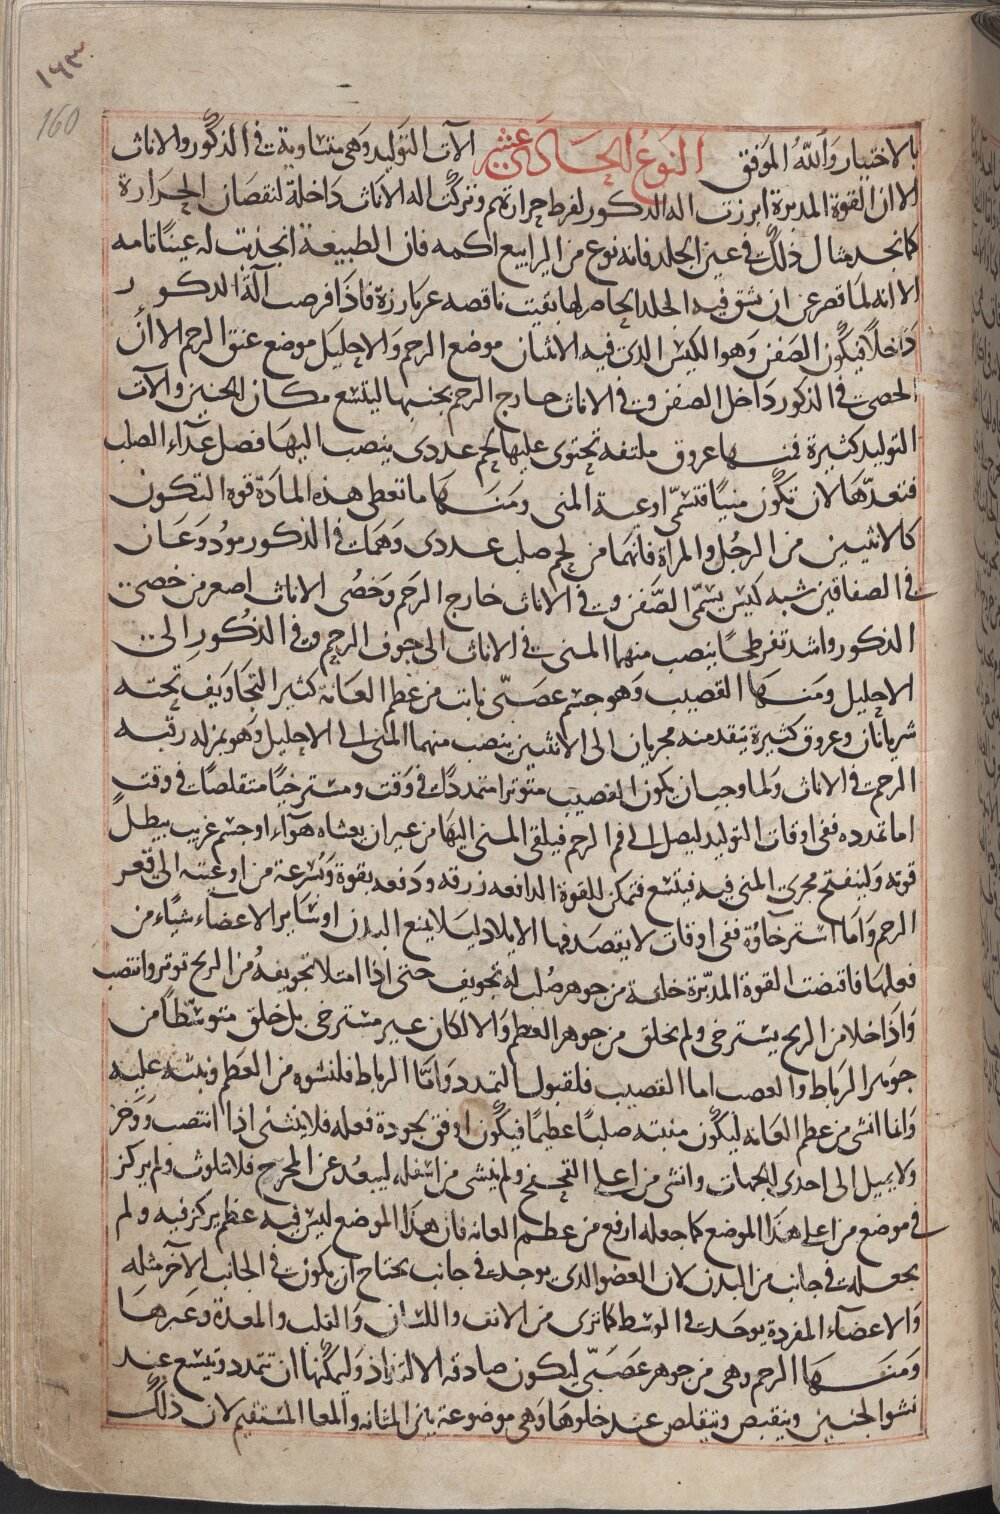 ١٦٣
160
بالاختيار والله الموفق النوع الحادى عشر الآت التوليد وهى متساوية فى الذكور والاناث
الا ان القوة المدبرة ابرزت اله الدكور لفرط حرارتهم وتركت اله الاناث داخلة لنقصان الحرارة
كما نجد مثال ذلك فى عين الخلد فانه نوع من اليرابيع اكمه فان الطبيعة اتخذت له عينا تامه
الا انه لما قصر عن ان يشق فيه الجلد الحاصر لها بقيت ناقصه غير بارزة فاذا فرضت آلة الدكور
داخلا فيكون الصفن وهو الكيس الدى فيه الانثيان موضع الرحم والاحليل موضع عنق الرحم الا ان
الخصى فى الذكور داخل الصفن وفى الاناث خارج الرحم بجنبها ليتسع مكان الجنين والآت
التوليد كثيرة فمنها عروق ملتفه تحتوى عليها لحم غددى ينصب اليها فضل غذاء الصلب
فتعدها لان تكون منيا فتسمى اوعية المنى ومنها ما تعطى هذه المادة قوة التكون
كالانثيين من الرجل والمراة فانهما من لحم صلب غددى وهما فى الذكور مودوعان
فى الصفاقين شبه كيس يسمى الصفن وفى الاناث خارج الرحم وخصى الاناث اصغر من خصى
الذكور واشد تفرطحا ينصب منهما المنى فى الاناث الى جوف الرحم وفى الذكور الى
الاحليل ومنها القصيب وهو جسم عصبى نابت من عظم العانه كثير التجاويف تحته
شريانان وعروق كثيرة يتقدمنه مجريان الى الانثيين ينصب منهما المنى الى الاحليل وهو بمنزله رقبه
الرحم فى الاناث ولما وجب ان يكون القصيب متوترا متمددا فى وقت ومسترخيا متقلصا فى وقت
اما تمدده ففى اوقات التوليد ليصل الى فم الرحم فيلقى المنى اليها من غير ان يغشاه هواء او جسم غريب يبطل
قوته ولينفتح مجرى المنى فيه فيتسع فتمكن للقوة الدافعه زرقه ودفعه بقوة وسرعة من اوعيته الى قعر
الرحم واما استرخاؤه ففى اوقات لا يقصد فيها الايلاد ليلا يمنع البدن او سائر الاعضاء شيئا من
فعلها فاقتضت القوة المدبرة خلقه من جوهر صلب له تجويف حتى اذا امتلا تجويفه من الريح توتر وانتصب
واذا خلا من الريح يسترخى ولم يخلق من جوهر العظم والا لكان غير مسترخى بل خلق متوسطا من
جوهر الرباط والعصب اما القصيب فلقبول التمدد واما الرباط فلنشوه من العظم ونبته عليه
وانما انشى من عظم العانه ليكون منبته صلبا عظيما فيكون اوفق بجودة فعله فلا ينثنى اذا انتصب ووخز
ولا يميل الى احدى الجهات وانشى من اعلا ولم ينشى من اسفله ليبعد عن المخرج فلا يتلوث ولم يركز
فى موضع من اعلى هذا الموضع كما جعله ارفع من عظم العانه فان هذا الموضع ليس فيه عظم يركز فيه ولم
يجعله فى جانب من البدن لان العضو الدى يوجد فى جانب يحتاج ان يكون فى الجانب الآخر مثله
والاعضاء المفردة يوجد فى الوسط كما ترى من الانف واللسان والقلب والمعدة وغيرها
ومنها الرحم وهى من جوهر عصبى ليكون صادقه الالتذاذ وليمكنها ان تتمدد وتتسع عند
نشو الجنين وينقبض وتتقلص عند خلوها وهى موضوعة بين المثانه والمعا المستقيم لان ذلك